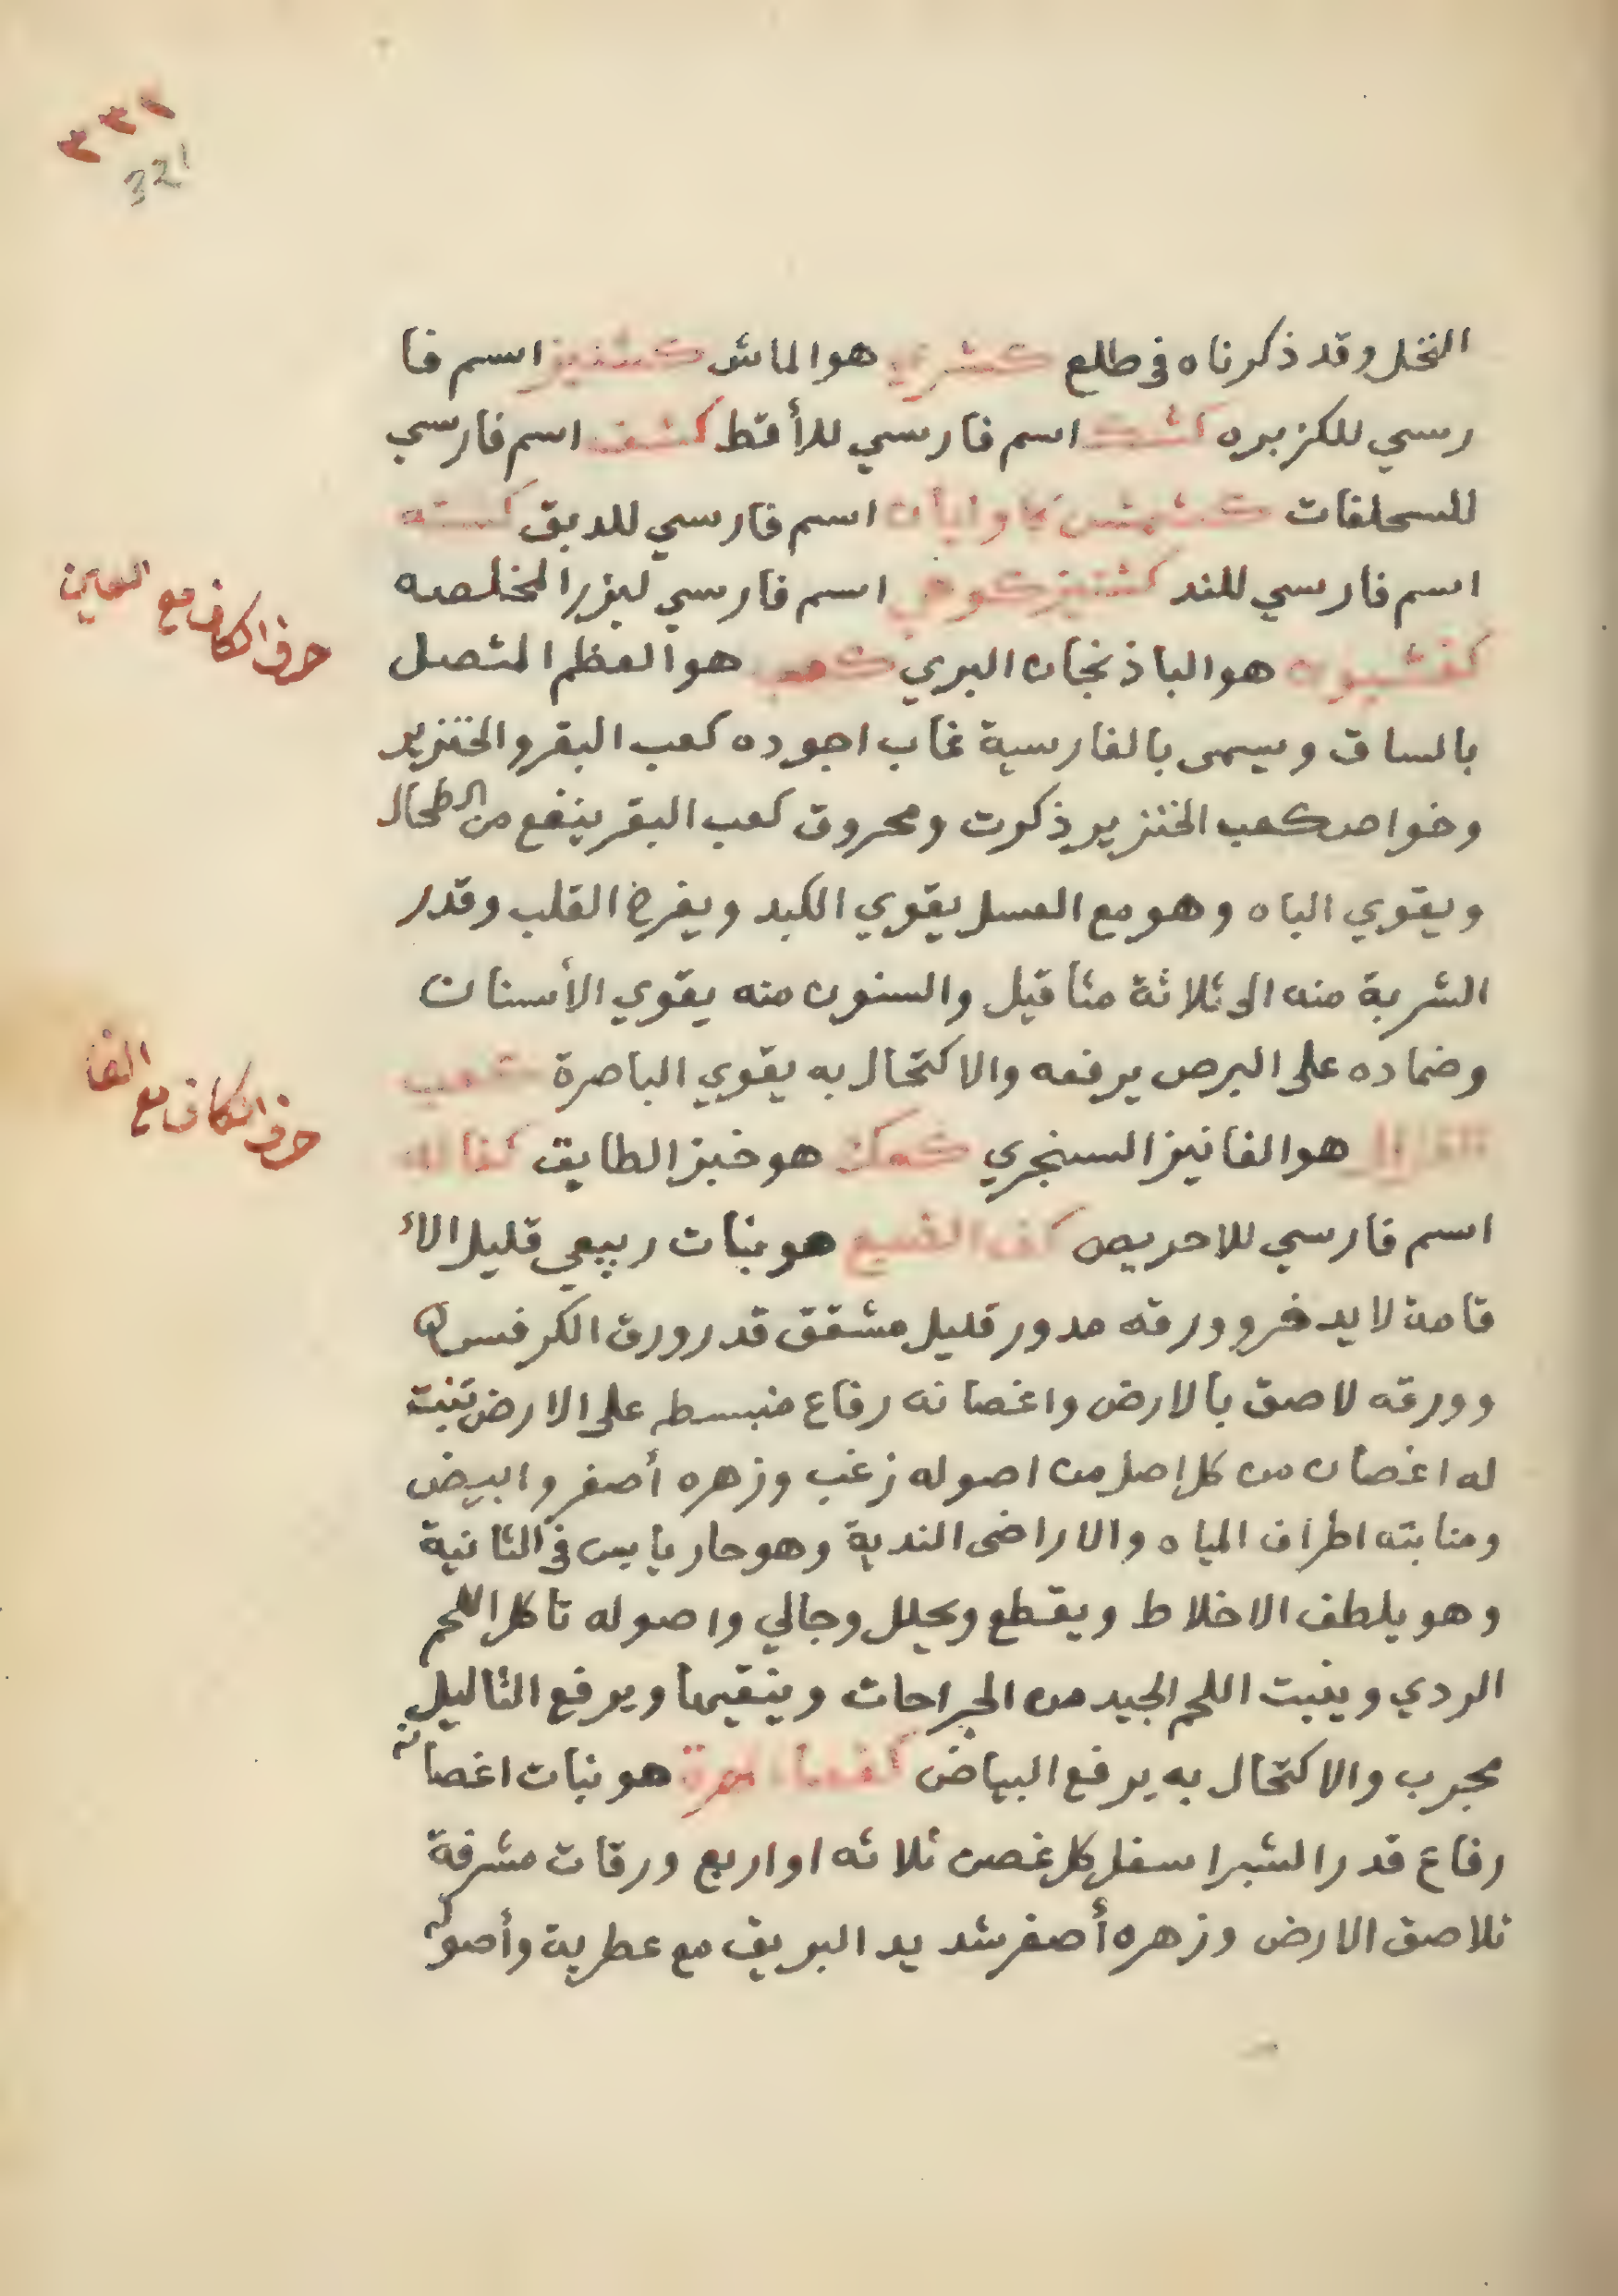 ٣٣١
321
النخل وقد ذكرناه في طلع كشري هو الماش كشنيز اسم فا
رسي للكزبره كشك اسم فارسي للأقط كشف اسم فارسي
للسحلفات كشمش كاوليان اسم فارسي للدبق كشته
اسم فارسي للند كشنيز كوهي اسم فارسي لبزر المخلصه
حرف الكاف مع العين
هو الباذنجان البري كعب هو العظم المتصل
بالساق ويسمى بالفارسية غاب اجوده كعب البقر والخنزير
وخواص كعب الخنزير ذكرت ومحروق كعب البقر ينفع من الطحال
ويقوي الباه وهو مع العسل يقوي الكبد ويفرح القلب وقدر
الشربة منه الى ثلاثة مثاقيل والسنون منه يقوي الأسنان
وضماده على البرص يرفعه والاكتحال به يقوي الباصرة كعب
الغزال هو الفانيز السنجري كعك هو خبز الطابق
حرف الكاف مع الفا
اسم فارسي للاحريص كف الضبع هو نبات ربيعي قليل الا
قامة لا يدخر وورقه مدور قليل مشقق قدر ورق الكرفس
وورقه لاصق بالارض واغصانه رفاع منبسطه على الارض تنبت
له اغصان من كل اصل من اصوله زغب وزهره أصفر وابيض
ومنابته اطراف المياه والاراضى الندية وهو حار يابس في الثانية
وهو يلطف الاخلاط ويقطع ويحلل وجالي واصوله تاكل اللحم
الردي وينبت اللحم الجيد من الجراحات وينقيها ويرفع الثاليل
مجرب والاكتحال به يرفع البياض هو نبات اغصانه
رفاع قدر الشبر اسفل كل غصن ثلاثه او اربع ورقات مشرفة
تلاصق الارض وزهره أصفر شديد البريق مع عطرية وأصوله